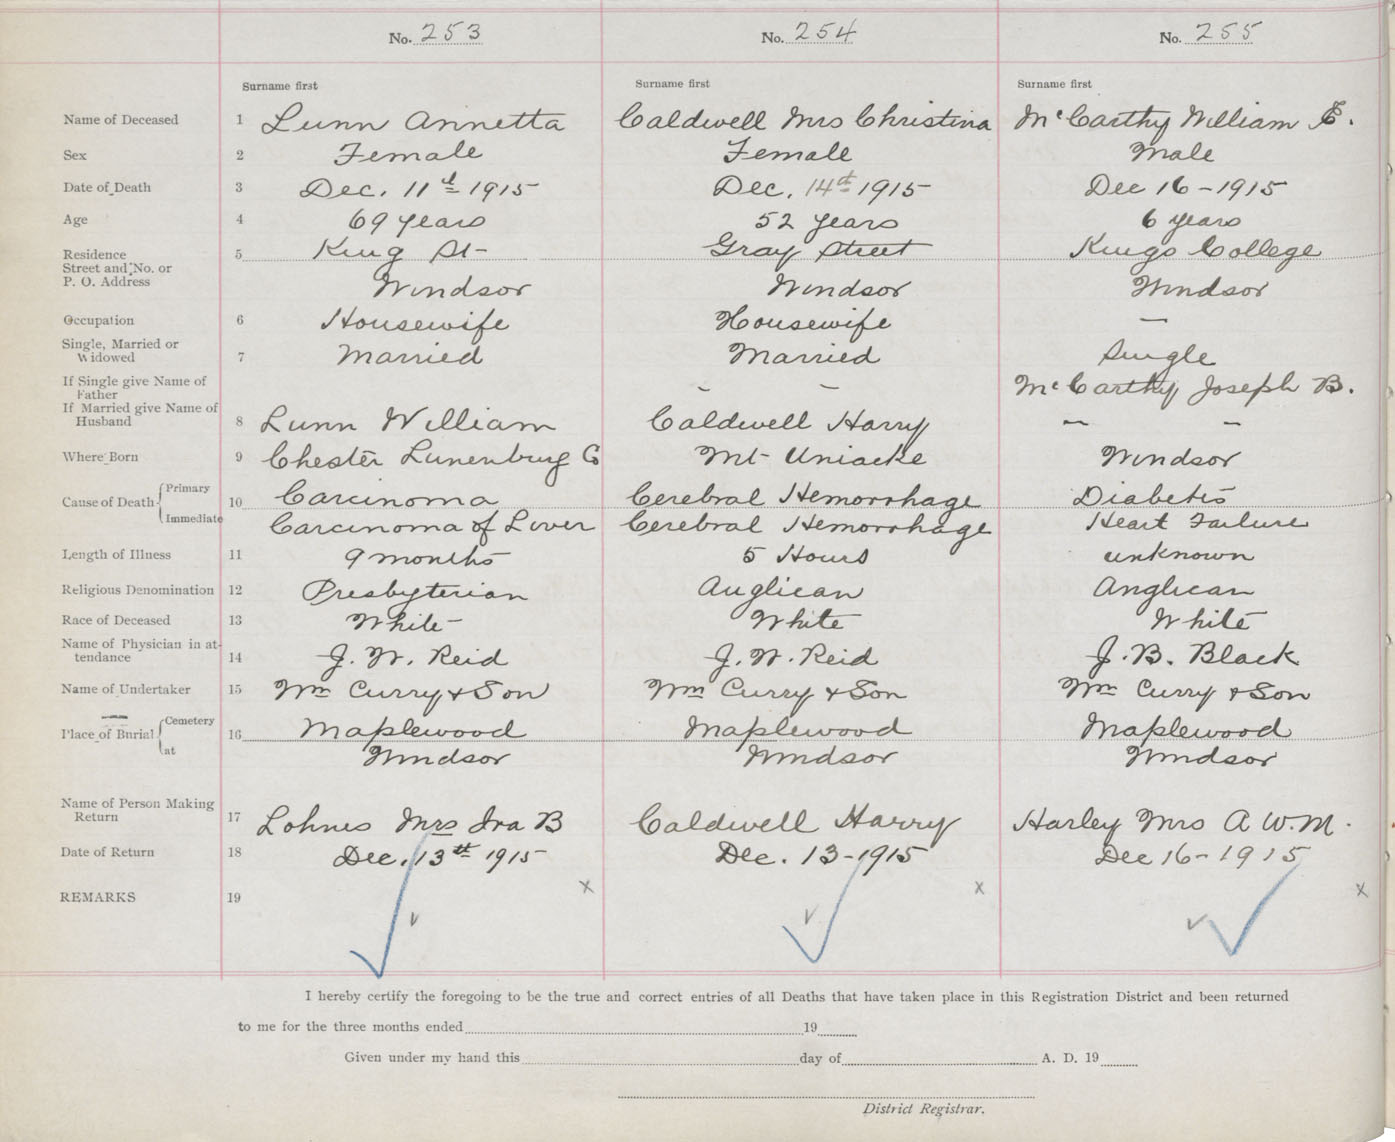 No. 253 No. 254 No. 255
Surname first Surname first Surname first
Name of Deceased 1 Lunn Annetta Caldwell Mrs Christina McCarthy William E.
Sex 2 Female Female Male
Date of Death 3 Dec. 11th 1915 Dec. 14th 1915 Dec 16-1915
Age 4 69 years 52 years 6 years
Residence 5 King St- Gray Street Kings College
Street and No. or
P. O. Address Windsor Windsor Windsor
Occupation 6 Housewife Housewife —
Single, Married or
Widowed 7 Married Married Single
If Single give Name of
Father - - McCarthy Joseph B.
If Married give Name of
Husband 8 Lunn William Caldwell Harry - -
Where Born 9 Chester Lunenburg Co Mt Uniacke Windsor
Cause of Death Primary 10 Carcinoma Cerebral Hemorrhage Diabetis
Immediate Carcinoma of Liver Cerebral Hemorrhage Heart Failure
Length of Illness 11 9 months 5 Hours unknown
Religious Denomination 12 Presbyterian Anglican Anglican
Race of Deceased 13 White White White
Name of Physician in at-
tendance 14 J. W. Reid J. W. Reid J. B. Black
Name of Undertaker 15 Wm Curry & Son Wm Curry & Son Wm Curry & Son
Place of Burial Cemetery 16 Maplewood Maplewood Maplewood
at Windsor Windsor Windsor
Name of Person Making
Return 17 Lohnes Mrs Ira B Caldwell Harry Harley Mrs A W. M.
Date of Return 18 Dec. 13th 1915 Dec. 13-1915 Dec 16-1915
REMARKS 19 x x x
I hereby certify the foregoing to be the true and correct entries of all Deaths that have taken place in this Registration District and been returned
to me for the three months ended 19
Given under my hand this day of A. D. 19
District Registrar.